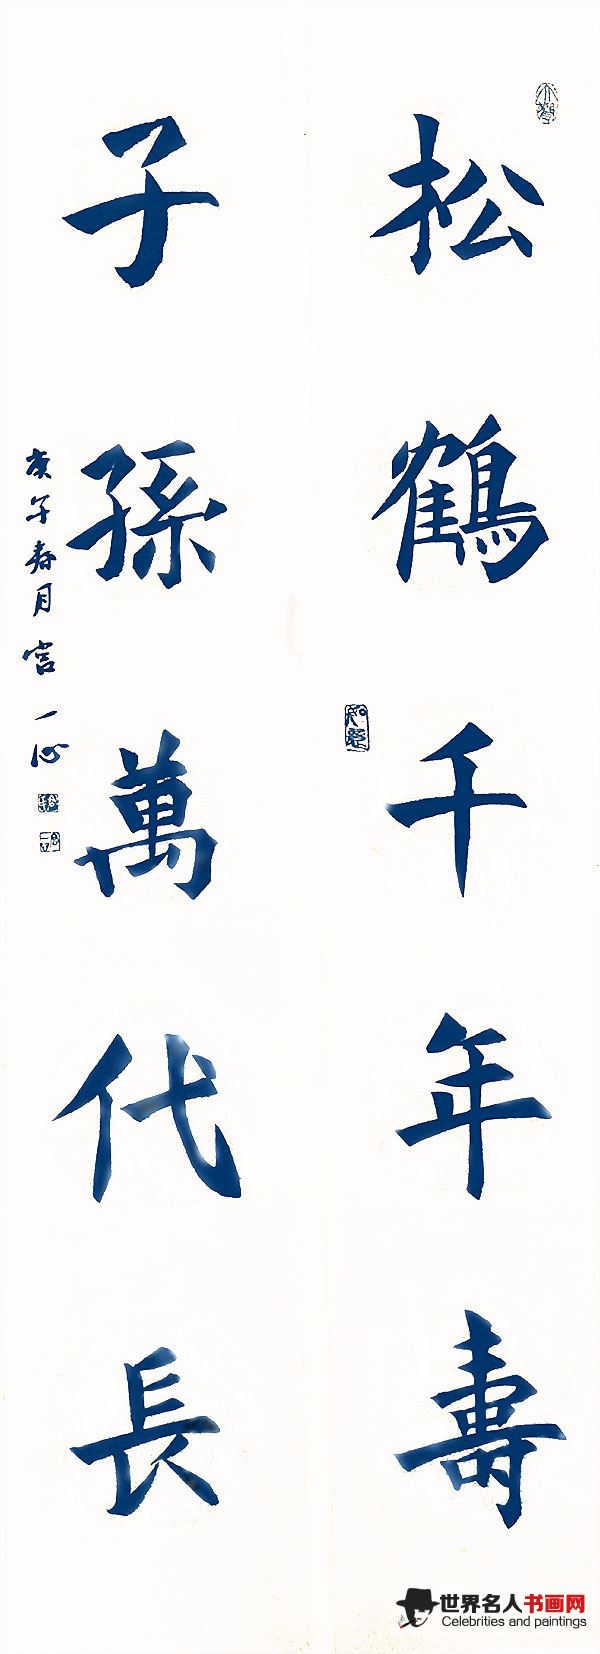 松鶴千年壽
子孫萬代長
庚午春月宫一
如意
世界名人书画网
Celebrities and paintings